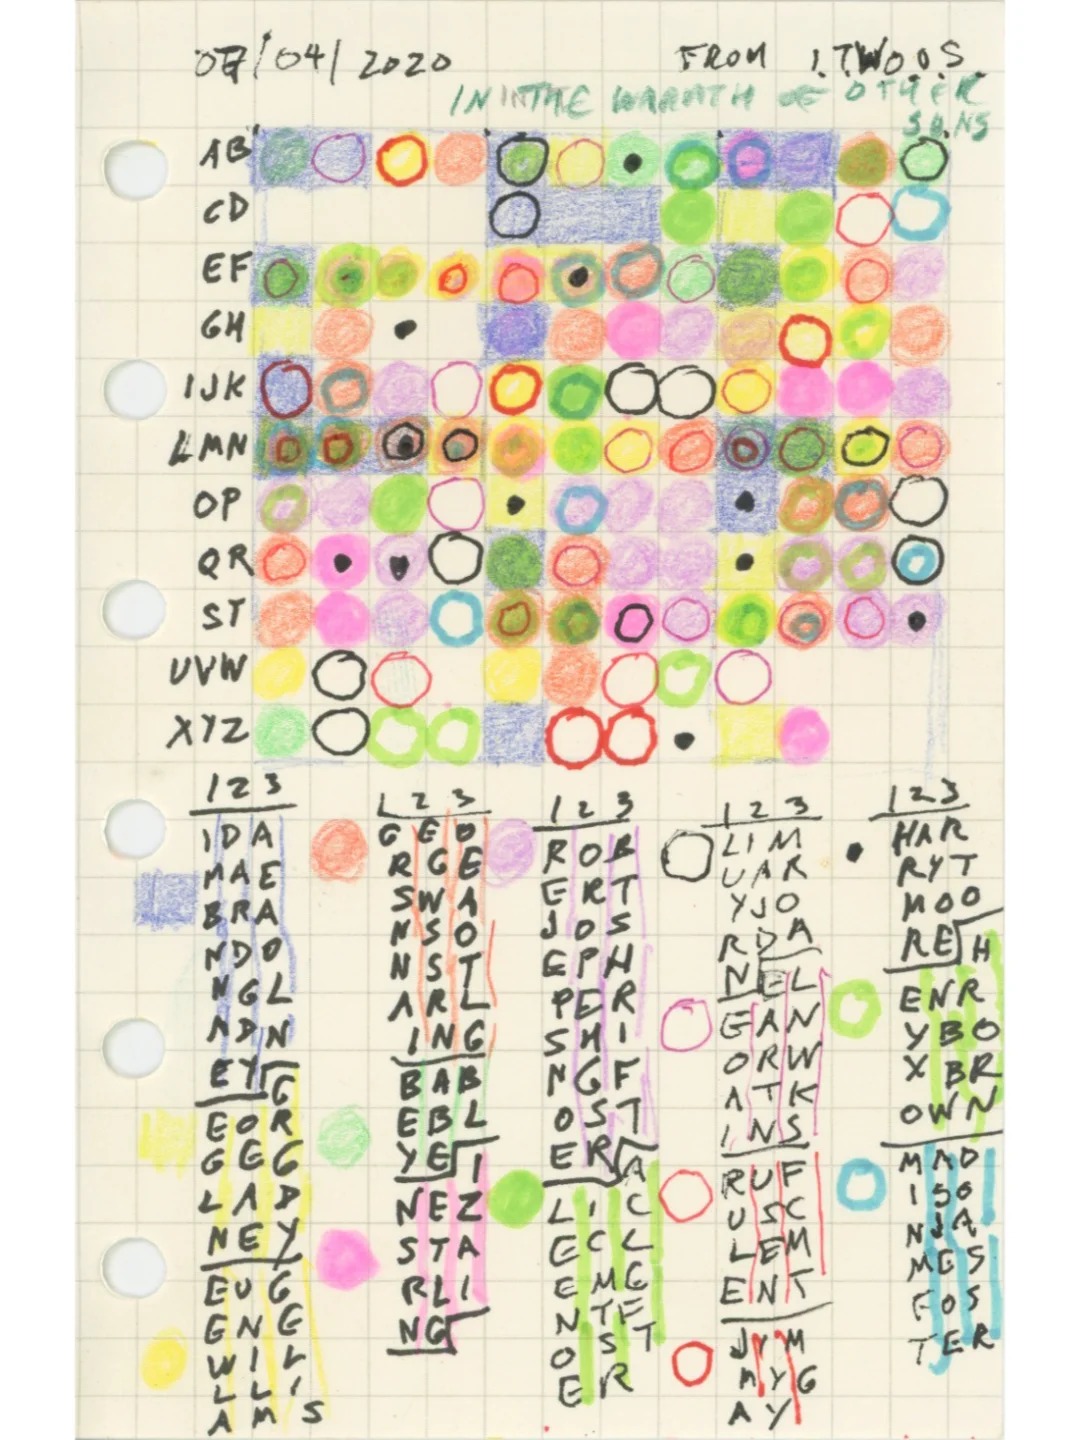 07/04/2020 FROM I.T.W.O.O.S.
IN THE WARMTH OF OTHER
SUNS
AB
CD
EF
GH
IJK
LMN
OP
QR
ST
UVW
XYZ
1 2 3
IDA
MAE
BRA
NDO
NGL
ADN
EYG
EOR
GEG
LAD
NEY
EUG
ENE
WIL
LLI
AMS
1 2 3
GEO
RGE
SWA
NSO
NST
ARL
ING
BAB
EBL
YEI
NEZ
STA
RLI
NG
1 2 3
ROB
ERT
JOS
EPH
PER
SHI
NGF
OST
ERA
LIC
ECL
EME
NTF
OST
ER
1 2 3
LIM
UAR
YJO
RDA
NEL
EAN
ORW
ATK
INS
RUF
USC
LEM
ENT
JIM
MYG
AY
1 2 3
HAR
RYT
MOO
REH
ENR
YBO
XBR
OWN
MAD
ISO
NJA
MES
FOS
TER